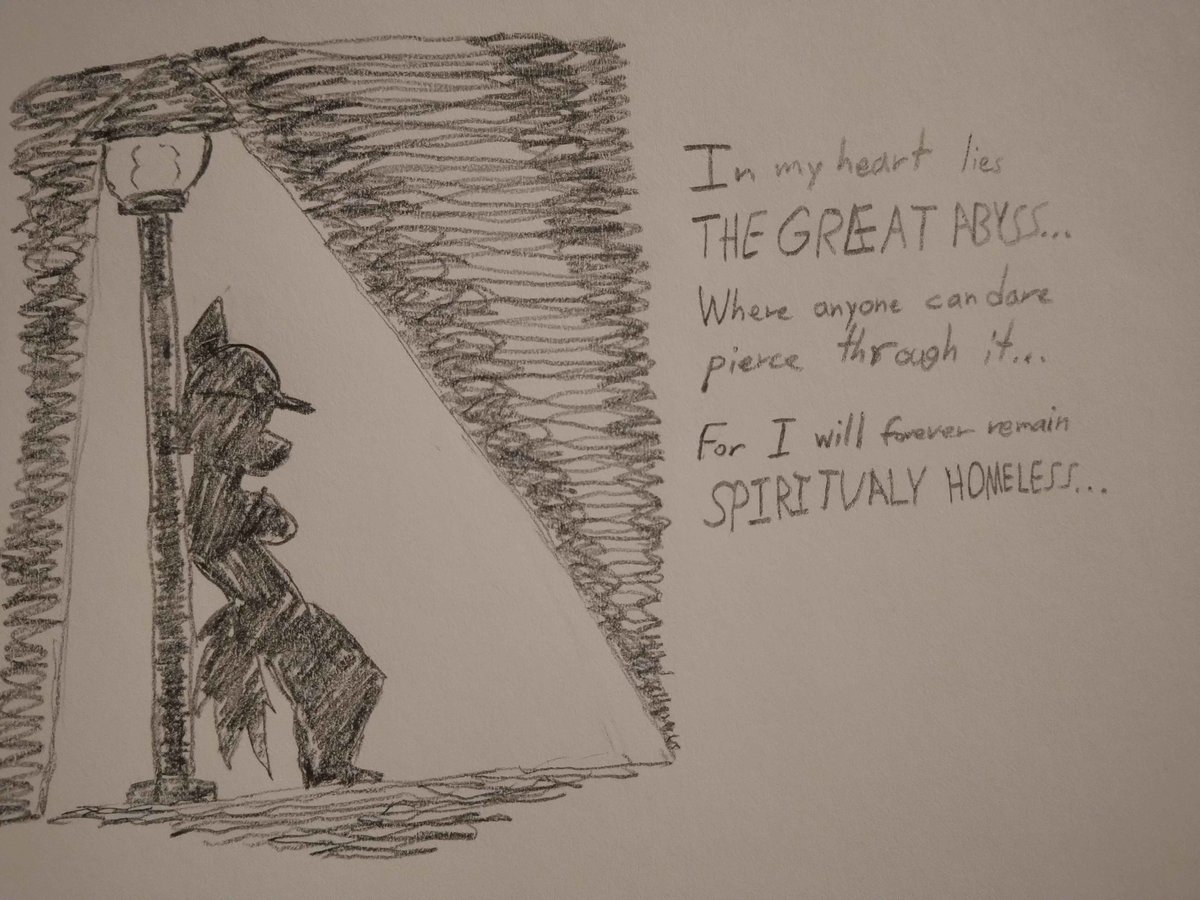 In my heart lies
THE GREAT ABYSS...
Where anyone can dare
pierce through it...
For I will forever remain
SPIRITUALY HOMELESS...